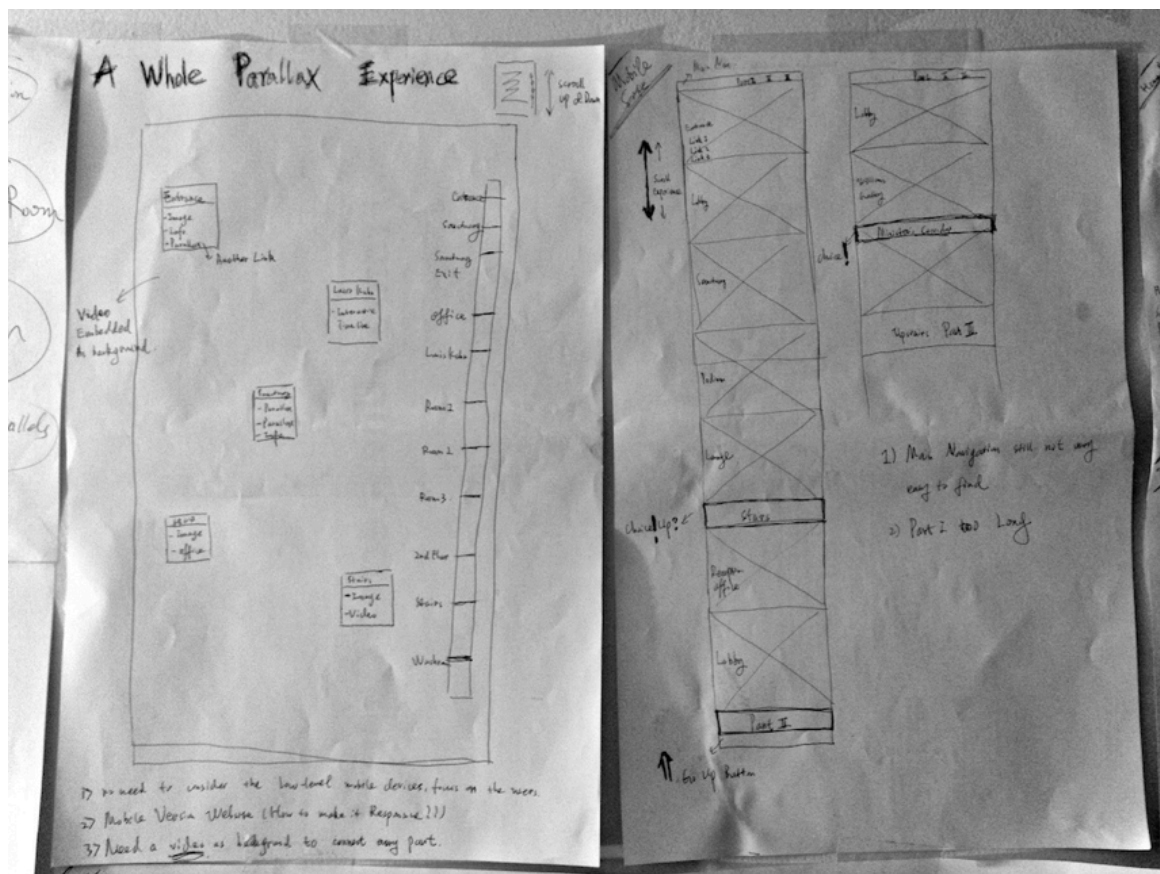 A Whole Parallax Experience
Scroll
Up & Down
Entrance
-Image
-Info
-Parallax
Another Link
Video
Embedded
As background.
Louis Kahn
-Interactive
Timeline
Sanctuary
-Parallax
-Parallax
-Info
-Image
-Office
Stairs
-Image
-Video
Entrance
Sanctuary
Sanctuary
Exit
Office
Louis Kahn
Room 1
Room 2
Room 3
2nd Floor
Stairs
1) no need to consider the low-level mobile devices, focus on the users.
2) Mobile Version Website (How to make it Responsive???)
3) Need a video as background to connect every part.
Room
Mobile
Main Nav
Part I II III
Entrance
Link 1
Link 2
Link 3
Lobby
Sanctuary
Lounge
Stairs
Choice! Up?
Office
Lobby
Part II
Go Up Button
Lobby
Choice!
Upstairs Part III
1) Main Navigation still not very
easy to find
2) Part I too Long